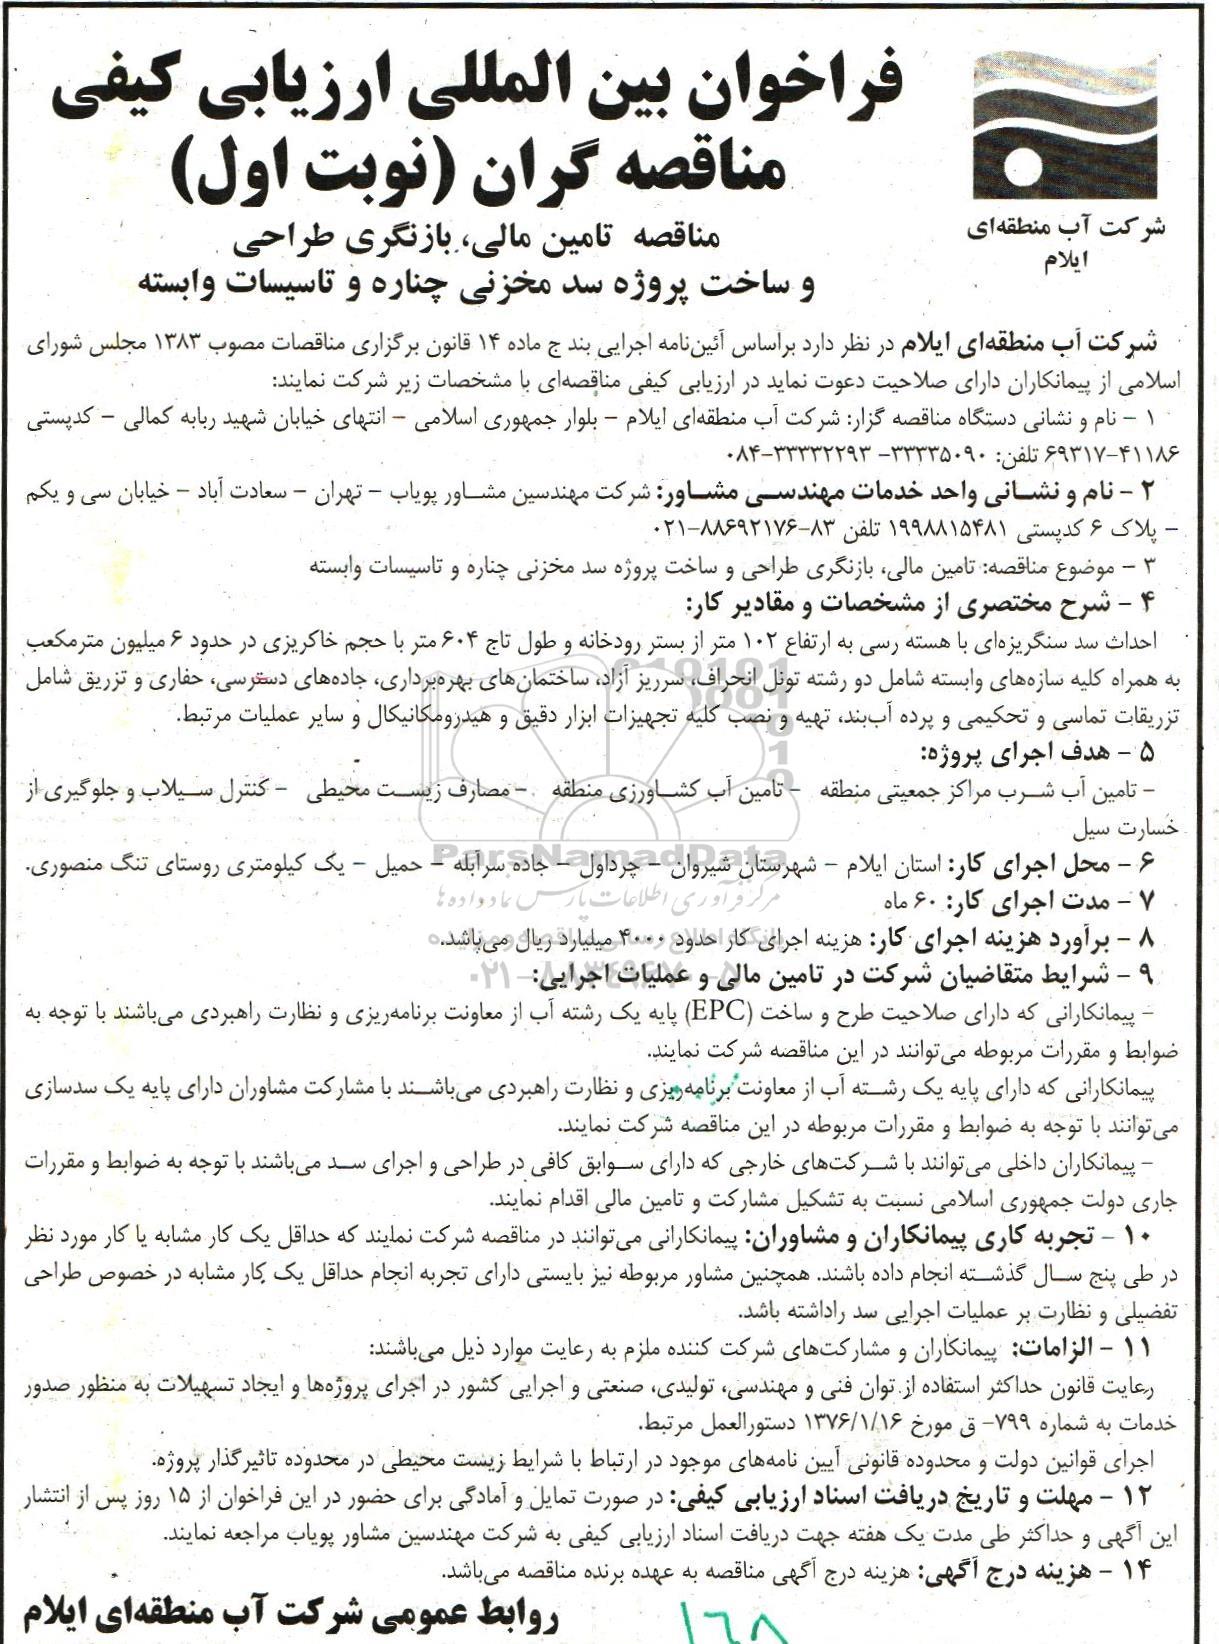 فراخوان بین المللی ارزیابی کیفی
مناقصه گران (نوبت اول)
شرکت آب منطقه‌ای
ایلام
مناقصه تامین مالی، بازنگری طراحی
و ساخت پروژه سد مخزنی چناره و تاسیسات وابسته
شرکت آب منطقه‌ای ایلام در نظر دارد براساس آئین‌نامه اجرایی بند ج ماده ۱۴ قانون برگزاری مناقصات مصوب ۱۳۸۳ مجلس شورای
اسلامی از پیمانکاران دارای صلاحیت دعوت نماید در ارزیابی کیفی مناقصه‌ای با مشخصات زیر شرکت نمایند:
۱ - نام و نشانی دستگاه مناقصه گزار: شرکت آب منطقه‌ای ایلام - بلوار جمهوری اسلامی - انتهای خیابان شهید ربابه کمالی - کدپستی
۶۹۳۱۷-۴۱۱۸۶ تلفن: ۳۳۳۳۵۰۹۰- ۳۳۳۳۲۲۹۳-۰۸۴
۲ - نام و نشانی واحد خدمات مهندسی مشاور: شرکت مهندسین مشاور پویاب - تهران - سعادت آباد - خیابان سی و یکم
- پلاک ۶ کدپستی ۱۹۹۸۸۱۵۴۸۱ تلفن ۸۳-۸۸۶۹۲۱۷۶-۰۲۱
۳ - موضوع مناقصه: تامین مالی، بازنگری طراحی و ساخت پروژه سد مخزنی چناره و تاسیسات وابسته
۴ - شرح مختصری از مشخصات و مقادیر کار:
احداث سد سنگریزه‌ای با هسته رسی به ارتفاع ۱۰۲ متر از بستر رودخانه و طول تاج ۶۰۴ متر با حجم خاکریزی در حدود ۶ میلیون مترمکعب
به همراه کلیه سازه‌های وابسته شامل دو رشته تونل انحراف، سرریز آزاد، ساختمان‌های بهره‌برداری، جاده‌های دسترسی، حفاری و تزریق شامل
تزریقات تماسی و تحکیمی و پرده آب‌بند، تهیه و نصب کلیه تجهیزات ابزار دقیق و هیدرومکانیکال و سایر عملیات مرتبط.
۵ - هدف اجرای پروژه:
- تامین آب شرب مراکز جمعیتی منطقه - تامین آب کشاورزی منطقه - مصارف زیست محیطی - کنترل سیلاب و جلوگیری از
خسارت سیل
ParsNamadData
۶ - محل اجرای کار: استان ایلام - شهرستان شیروان - چرداول - جاده سرآبله - حمیل - یک کیلومتری روستای تنگ منصوری.
۷ - مدت اجرای کار: ۶۰ ماه
مرکز فرآوری اطلاعات پارس نماد داده‌ها
۸ - برآورد هزینه اجرای کار: هزینه اجرای کار حدود ۴۰۰۰ میلیارد ریال می‌باشد.
۹ - شرایط متقاضیان شرکت در تامین مالی و عملیات اجرایی:
۰۲۱-۸۸۳۴۹۶۷۰-۵
- پیمانکارانی که دارای صلاحیت طرح و ساخت (EPC) پایه یک رشته آب از معاونت برنامه‌ریزی و نظارت راهبردی می‌باشند با توجه به
ضوابط و مقررات مربوطه می‌توانند در این مناقصه شرکت نمایند.
پیمانکارانی که دارای پایه یک رشته آب از معاونت برنامه‌ریزی و نظارت راهبردی می‌باشند با مشارکت مشاوران دارای پایه یک سدسازی
می‌توانند با توجه به ضوابط و مقررات مربوطه در این مناقصه شرکت نمایند.
- پیمانکاران داخلی می‌توانند با شرکت‌های خارجی که دارای سوابق کافی در طراحی و اجرای سد می‌باشند با توجه به ضوابط و مقررات
جاری دولت جمهوری اسلامی نسبت به تشکیل مشارکت و تامین مالی اقدام نمایند.
۱۰ - تجربه کاری پیمانکاران و مشاوران: پیمانکارانی می‌توانند در مناقصه شرکت نمایند که حداقل یک کار مشابه یا کار مورد نظر
در طی پنج سال گذشته انجام داده باشند. همچنین مشاور مربوطه نیز بایستی دارای تجربه انجام حداقل یک کار مشابه در خصوص طراحی
تفضیلی و نظارت بر عملیات اجرایی سد راداشته باشد.
۱۱ - الزامات: پیمانکاران و مشارکت‌های شرکت کننده ملزم به رعایت موارد ذیل می‌باشند:
رعایت قانون حداکثر استفاده از توان فنی و مهندسی، تولیدی، صنعتی و اجرایی کشور در اجرای پروژه‌ها و ایجاد تسهیلات به منظور صدور
خدمات به شماره ۷۹۹- ق مورخ ۱۳۷۶/۱/۱۶ دستورالعمل مرتبط.
اجرای قوانین دولت و محدوده قانونی آیین نامه‌های موجود در ارتباط با شرایط زیست محیطی در محدوده تاثیرگذار پروژه.
۱۲ - مهلت و تاریخ دریافت اسناد ارزیابی کیفی: در صورت تمایل و آمادگی برای حضور در این فراخوان از ۱۵ روز پس از انتشار
این آگهی و حداکثر طی مدت یک هفته جهت دریافت اسناد ارزیابی کیفی به شرکت مهندسین مشاور پویاب مراجعه نمایند.
۱۴ - هزینه درج آگهی: هزینه درج آگهی مناقصه به عهده برنده مناقصه می‌باشد.
روابط عمومی شرکت آب منطقه‌ای ایلام
۱۶۸